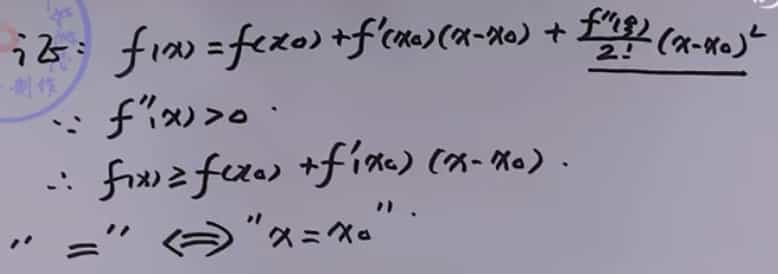 证: f(x) = f(x₀) + f'(x₀)(x-x₀) + f''(ξ)/2! (x-x₀)²
制作
∵ f''(x) > 0.
∴ f(x) ≥ f(x₀) + f'(x₀)(x-x₀).
"=" ⟺ "x=x₀".